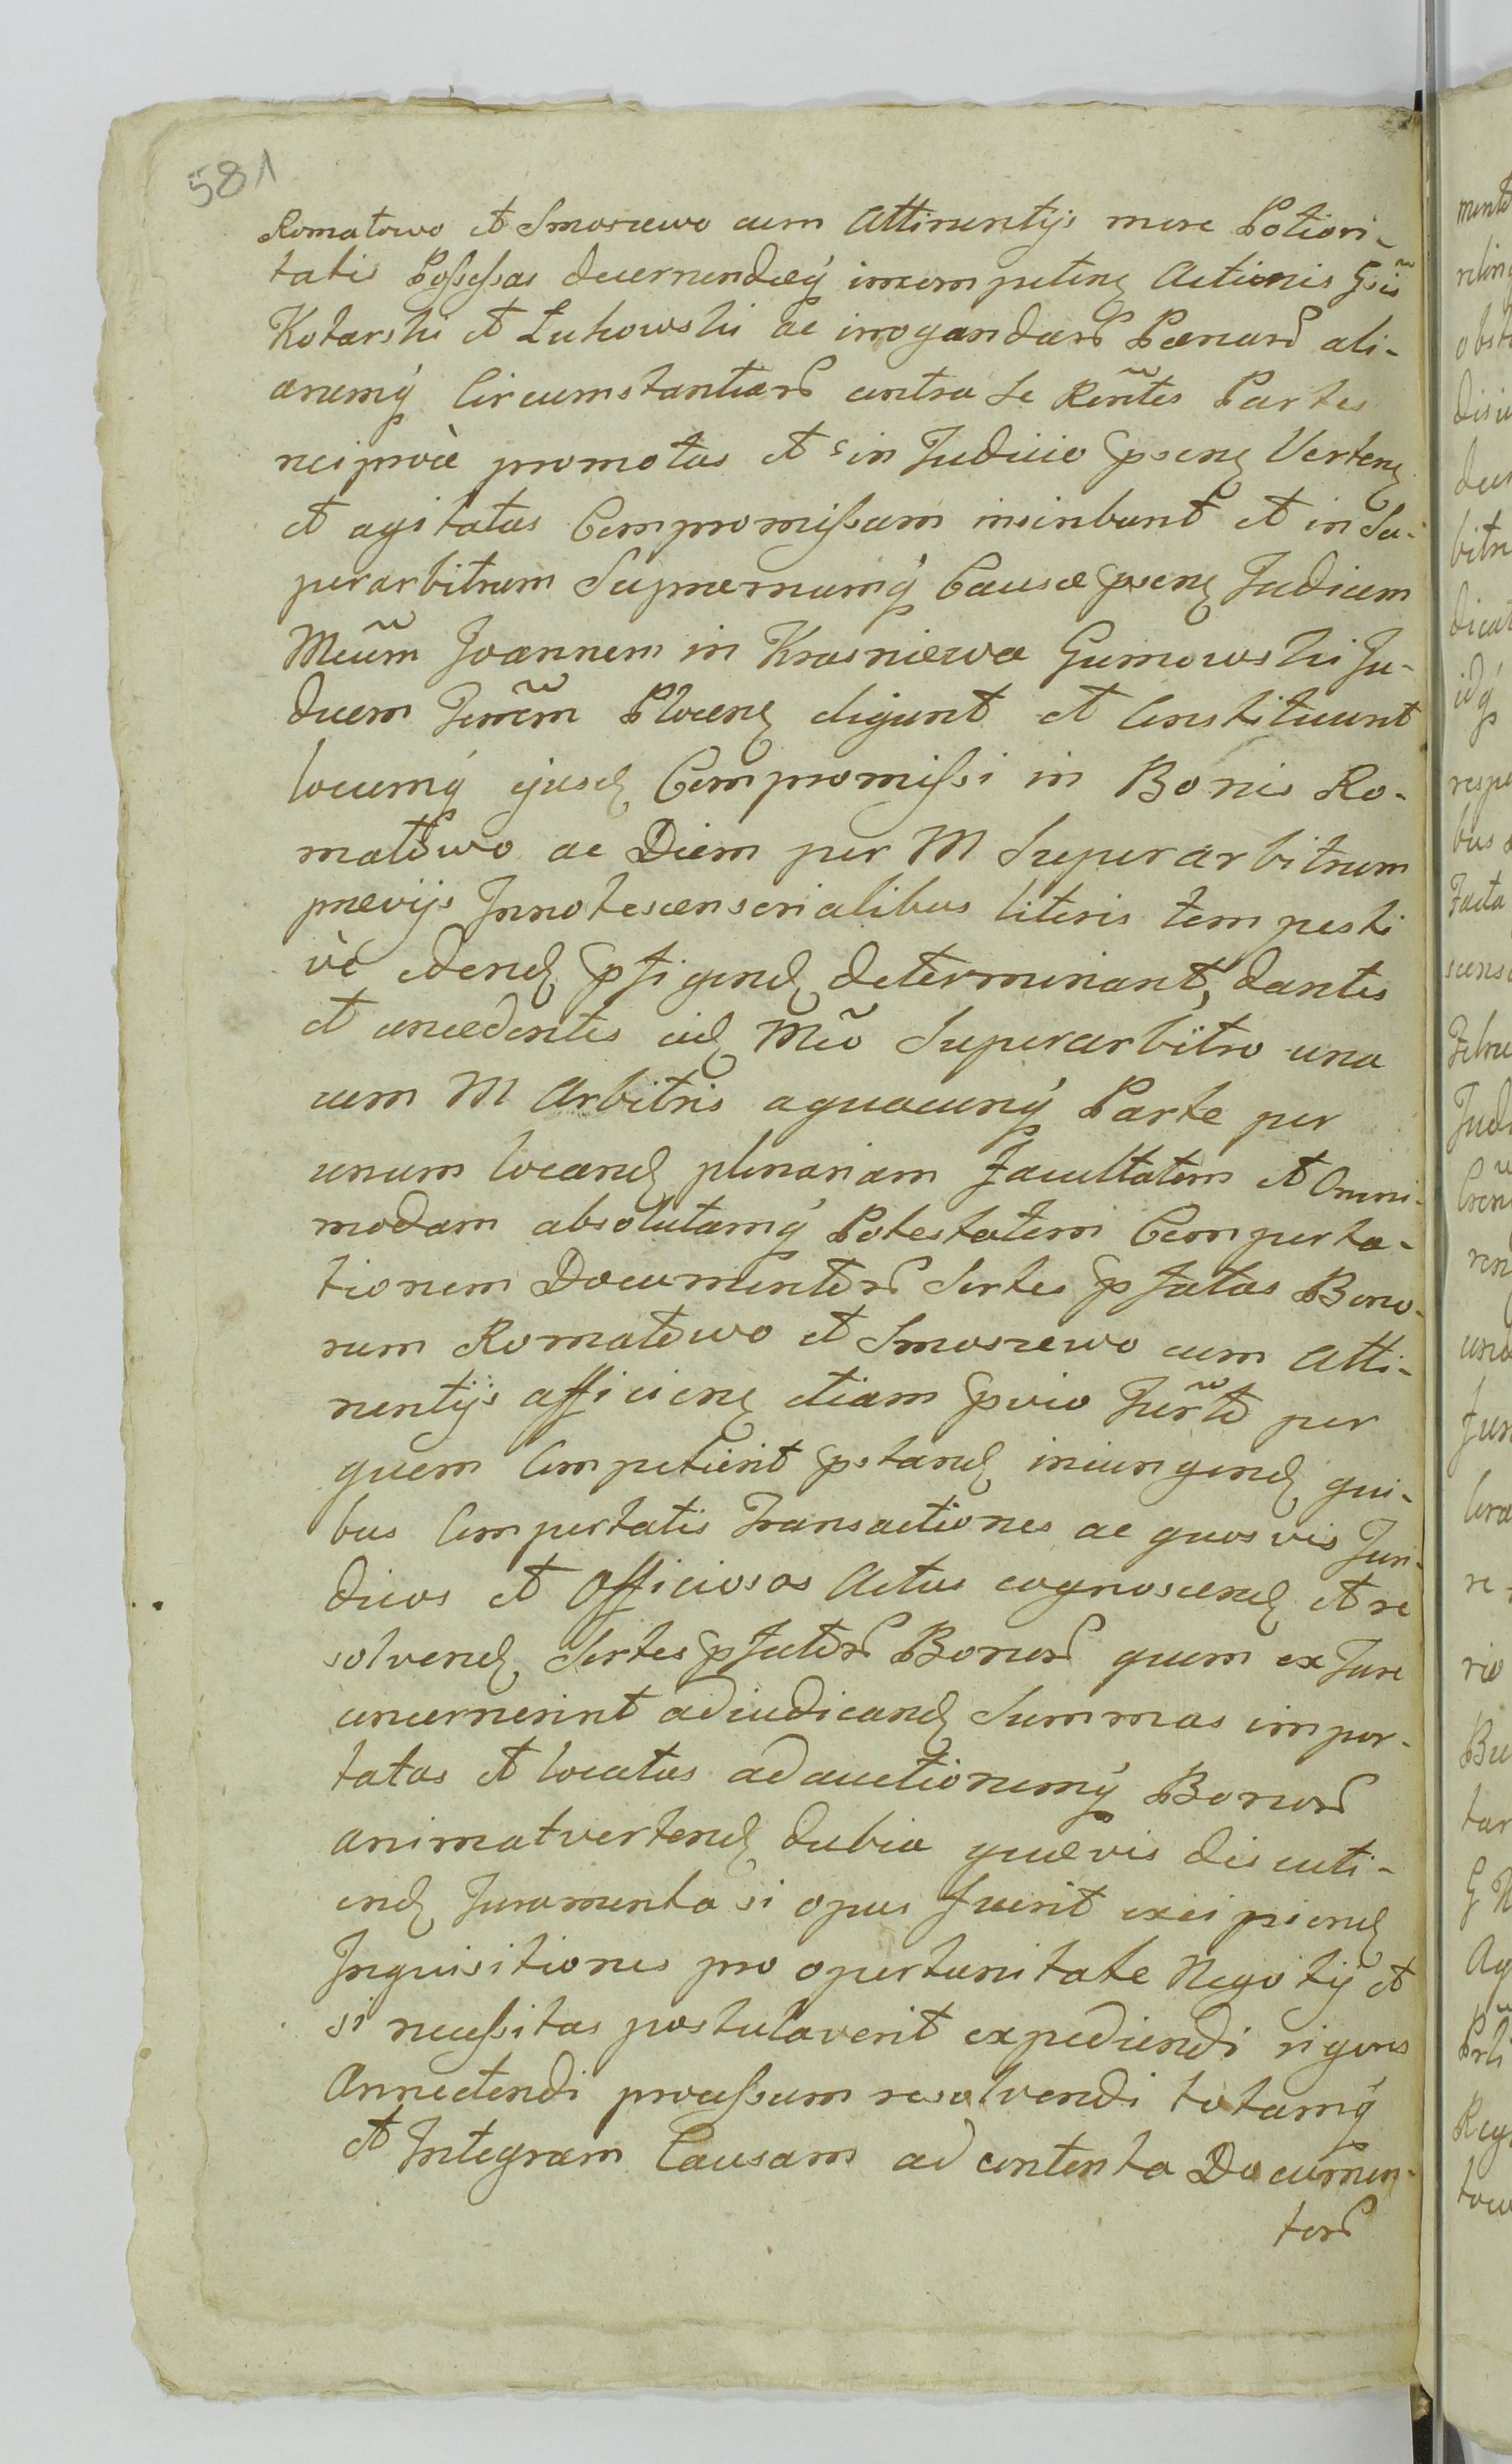 581
Romatowo et Smoszewo cum Attinentÿs more Potiori-
tatis Possessas decernendæq́ incompeten Actionis Gsis̃
Kotarski et Łukowski ac irrogandarũ Pœnarũ ali-
arumq́ Circumstantiarũ contra se Rentes̃ Partes
reciprocè promotas et in Judicio p̃sen Verten
et agitatas Compromissum inscribunt et in Su-
perarbitrum Supremumq́ Causæ p̃sen Judicem
Mcum̃ Joannem in Krasniewa Gumowski Ju-
dicem Trrem̃ Plocen eligunt et Constituunt
locumq́ ejusd Compromissi in Bonis Ro-
matowo ac Diem per M Superarbitrum
prævÿs Innotescensorialibus literis tempesti
vè edend p̃figend determinant, dantes
et concedentes eid Mco̅ Superarbitro una
cum M Arbitris aquacunq́ Parte per
unum locand plenariam Facultatem et Omni-
modam absolutamq́ Potestatem Comporta-
tionem Documentorũ Sortes p̃fatas Bono-
rum Romatowo et Smoszewo cum Atti-
nentÿs afficien etiam p̃vio Jurto̅ per
quem Competierit p̃stand iniungend qui-
bus Comportatis Transactiones ac quosvis Juri-
dicos et Officiosos Actus cognoscend et re
solvend Sortes p̃fatorũ Bonorũ quem ex Jure
concernerint adiudicand Summas impor-
tatas et locatas adauctionemq́ Bonorũ
animatvertend dubia quævis discuti-
end Juramenta si opus fuerit excipiend
Inquisitiones pro opertunitate Negotÿ et
si necessitas postulaverit expediendi rigores
Annectendi processum resolvendi totamq́
et Integram Causam ad contenta Documen-
torũ